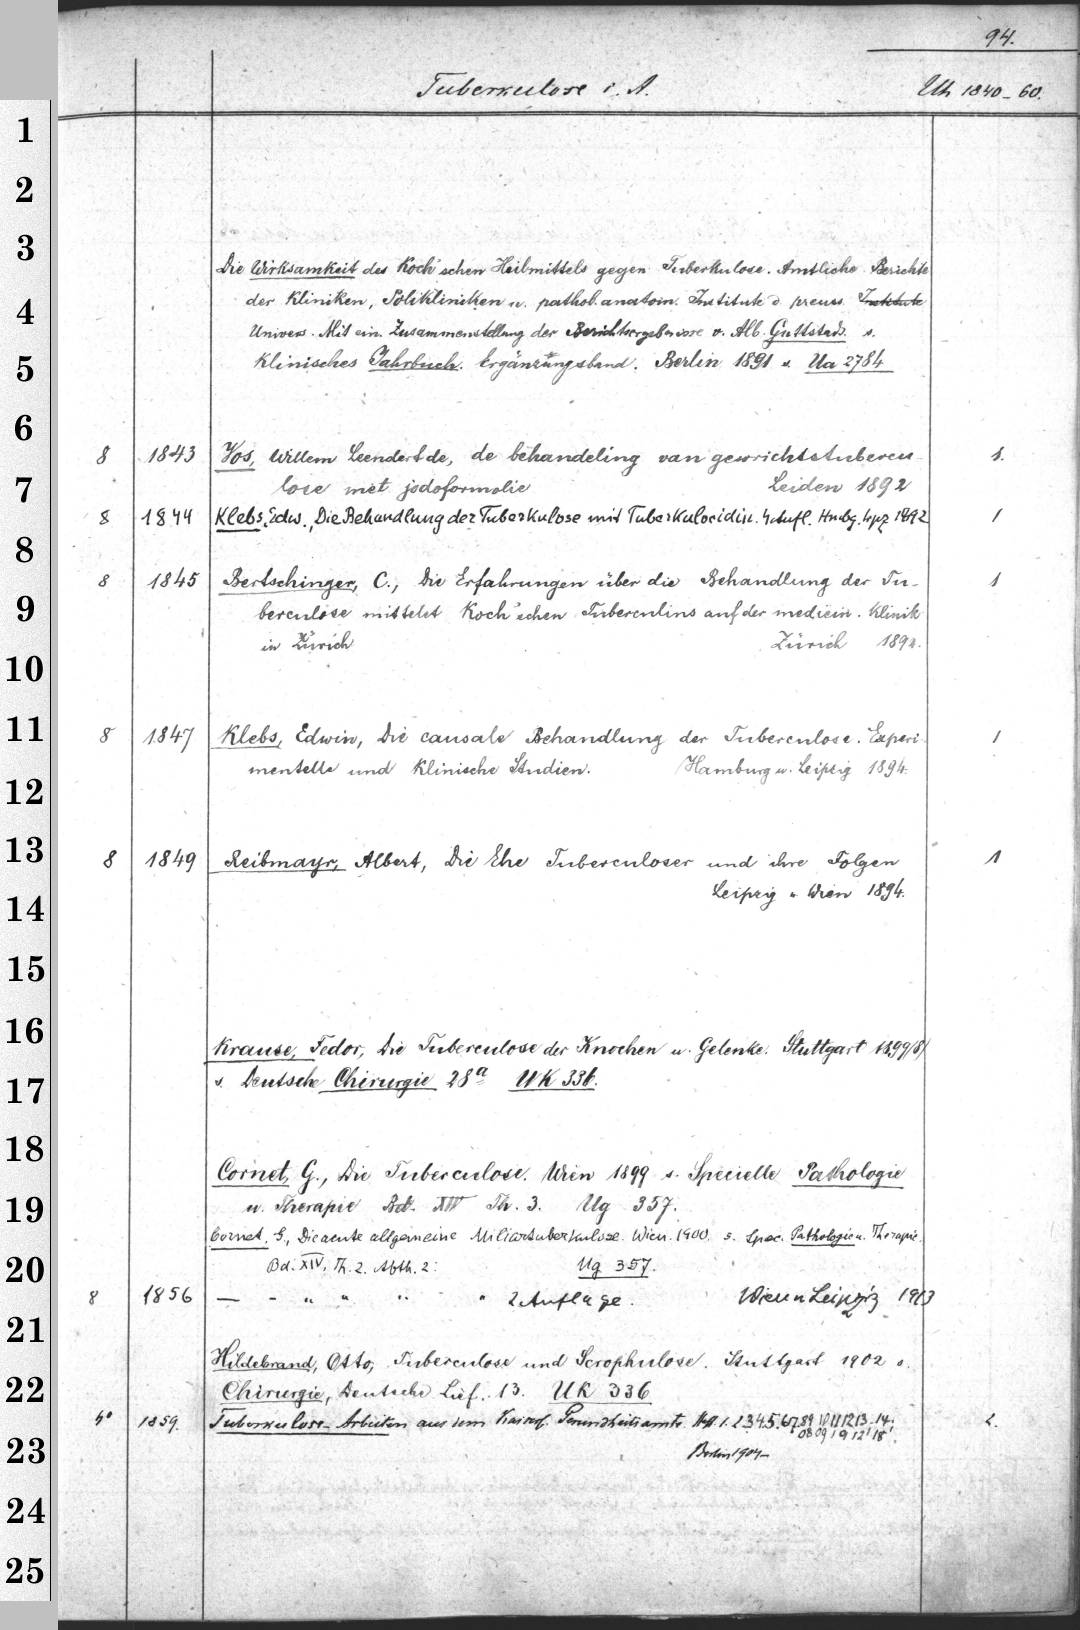 94.
Tuberkulose i. A. Uh 1840-60.
1
2
3
Die Wirksamkeit des Koch'schen Heilmittels gegen Tuberkulose. Amtliche Berichte
der Kliniken, Polikliniken u. pathol. anatom. Institute d. preuss. Institute
4
Univers. Mit ein. Zusammenstellung der v. Alb. Guttstadt. s.
5
Klinisches Jahrbuch. Ergänzungsband. Berlin 1891 s. Ua 2784
6
8 1843 Vos, Willem Leendert de, de behandeling van gewrichtstubercu- 1.
7
lose met jodoformolie Leiden 1892
8 1844 Klebs, Edw., Die Behandlung der Tuberkulose mit Tuberkulocidin. 4 Aufl. Hmbg. Lpz 1892 1
8
8 1845 Bertschinger, C., Die Erfahrungen über die Behandlung der Tu- 1
9
berculose mittelst Koch'schen Tuberculins auf der medicin. Klinik
in Zürich Zürich 1892.
10
11
8 1847 Klebs, Edwin, Die causale Behandlung der Tuberculose. Experi- 1
mentelle und Klinische Studien. Hamburg u. Leipzig 1894.
12
13
8 1849 Reibmayr, Albert, Die Ehe Tuberculoser und ihre Folgen 1
Leipzig u. Wien 1894.
14
15
16
Krause, Fedor, Die Tuberculose der Knochen u. Gelenke. Stuttgart
17
s. Deutsche Chirurgie 28a UK 336.
18
Cornet, G., Die Tuberculose. Wien 1899 s. Specielle Pathologie
19
u. Therapie Bd. XIV Th. 3. Ug 357.
Cornet, G., Die acute allgemeine Miliartuberkulose. Wien. 1900. s. Spec. Pathologie u. Therapie.
20
Bd. XIV, Th. 2. Abth. 2. Ug 357.
8 1856 — - " " " " 2 Auflage. Wien u Leipzig 1913
21
Hildebrand, Otto, Tuberculose und Scrophulose. Stuttgart 1902 s.
22
Chirurgie, Deutsche Lief. 13. UK 336
4° 1859. Tuberkulose-Arbeiten aus dem Kaiserl. Gesundheitsamte. Hft 1. 2 3 4. 5. 6 7. 8 9 10 11 12 13 - 14. 2.
23
Berlin 1904-
24
25